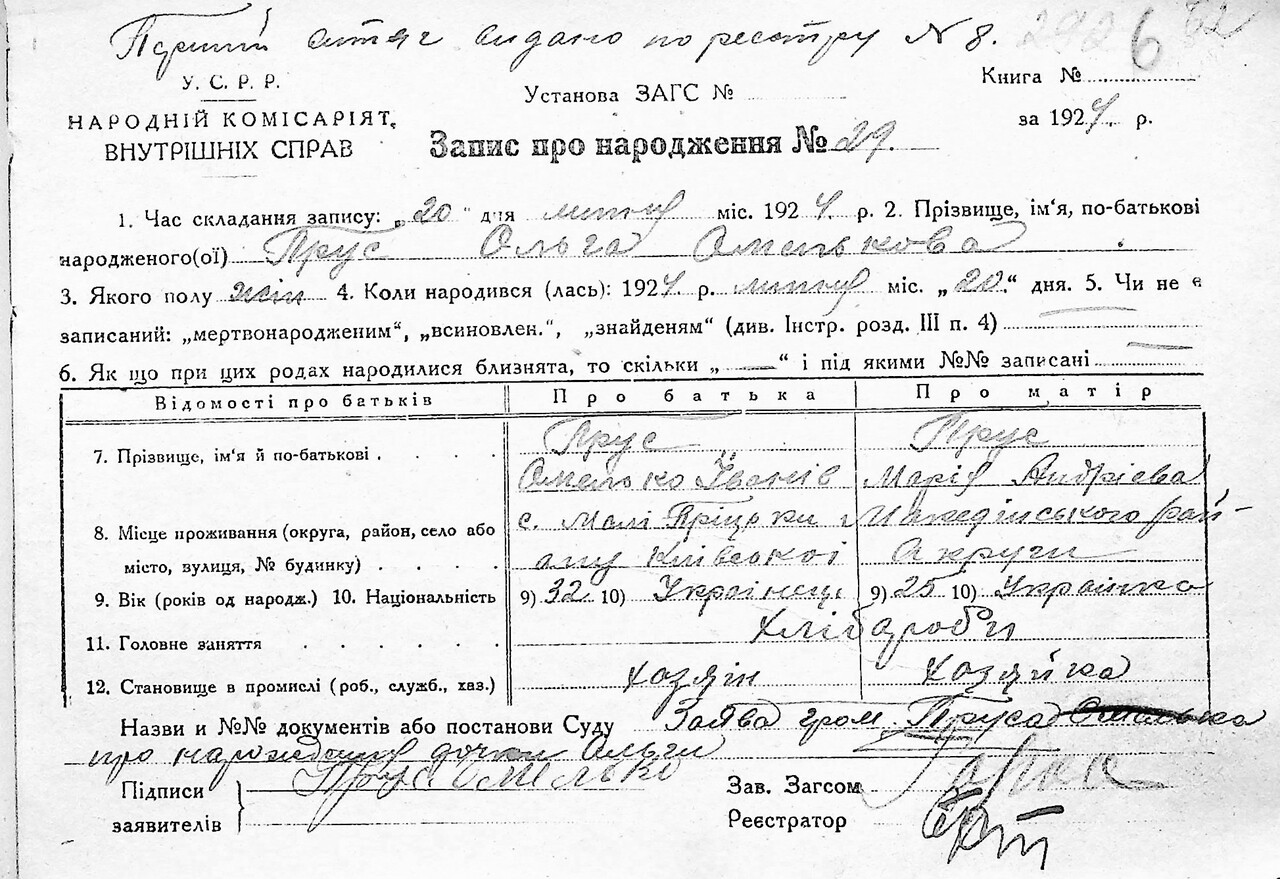 Перший витяг видано по реестру N 8. 2926 82
У. С. Р. Р.
НАРОДНІЙ КОМІСАРІЯТ
ВНУТРІШНІХ СПРАВ
Установа ЗАГС №
Книга №
за 1924 р.
Запис про народження № 29.
1. Час складання запису: „20" дня липня міс. 1924. р. 2. Прізвище, ім'я, по-батькові
народженого(ої) Прус Ольга Омелькова
3. Якого полу жін 4. Коли народився (лась): 1924 р. липня міс. „20." дня. 5. Чи не є
записаний: „мертвонародженим", „всиновлен.", „знайденям" (див. Інстр. розд. III п. 4)
6. Як що при цих родах народилися близнята, то скільки „ — " і під якими №№ записані
Відомості про батьків Про батька Про матір
7. Прізвище, ім'я й по-батькові Прус Прус
Омелько Іванів Марія Андрієва
8. Місце проживання (округа, район, село або с. Малі Пріцьки рай-
місто, вулиця, № будинку) ону Київської Округи
9. Вік (років од народж.) 10. Національність 9) 32 10) Українець 9) 25 10) Українка
11. Головне заняття Хлібароби
12. Становище в промислі (роб., служб., хаз.) хазяін хазяйка
Назви и №№ документів або постанови Суду Заява гром. Пруса Омелька
про народження дочки Ольги
Підписи Прус Омелько
заявителів
Зав. Загсом
Реєстратор